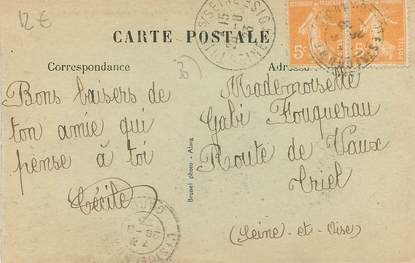 12€
CARTE POSTALE
Correspondance
Bons baisers de
ton amie qui
pense à toi
Cécile
Brunel photo - Alang
Mademoiselle
Gabi Fouquerau
Route de Vaux
Triel
(Seine-et-Oise)
5c
5c